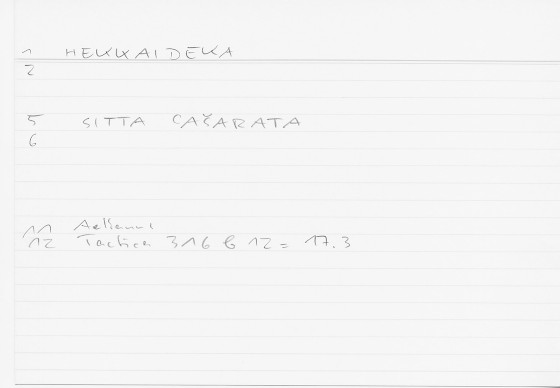 1 HEKKAIDEKA
2
5 SITTA CAČARATA
6
11 Aelianus
12 Tactica 316 6 12 = 17.3